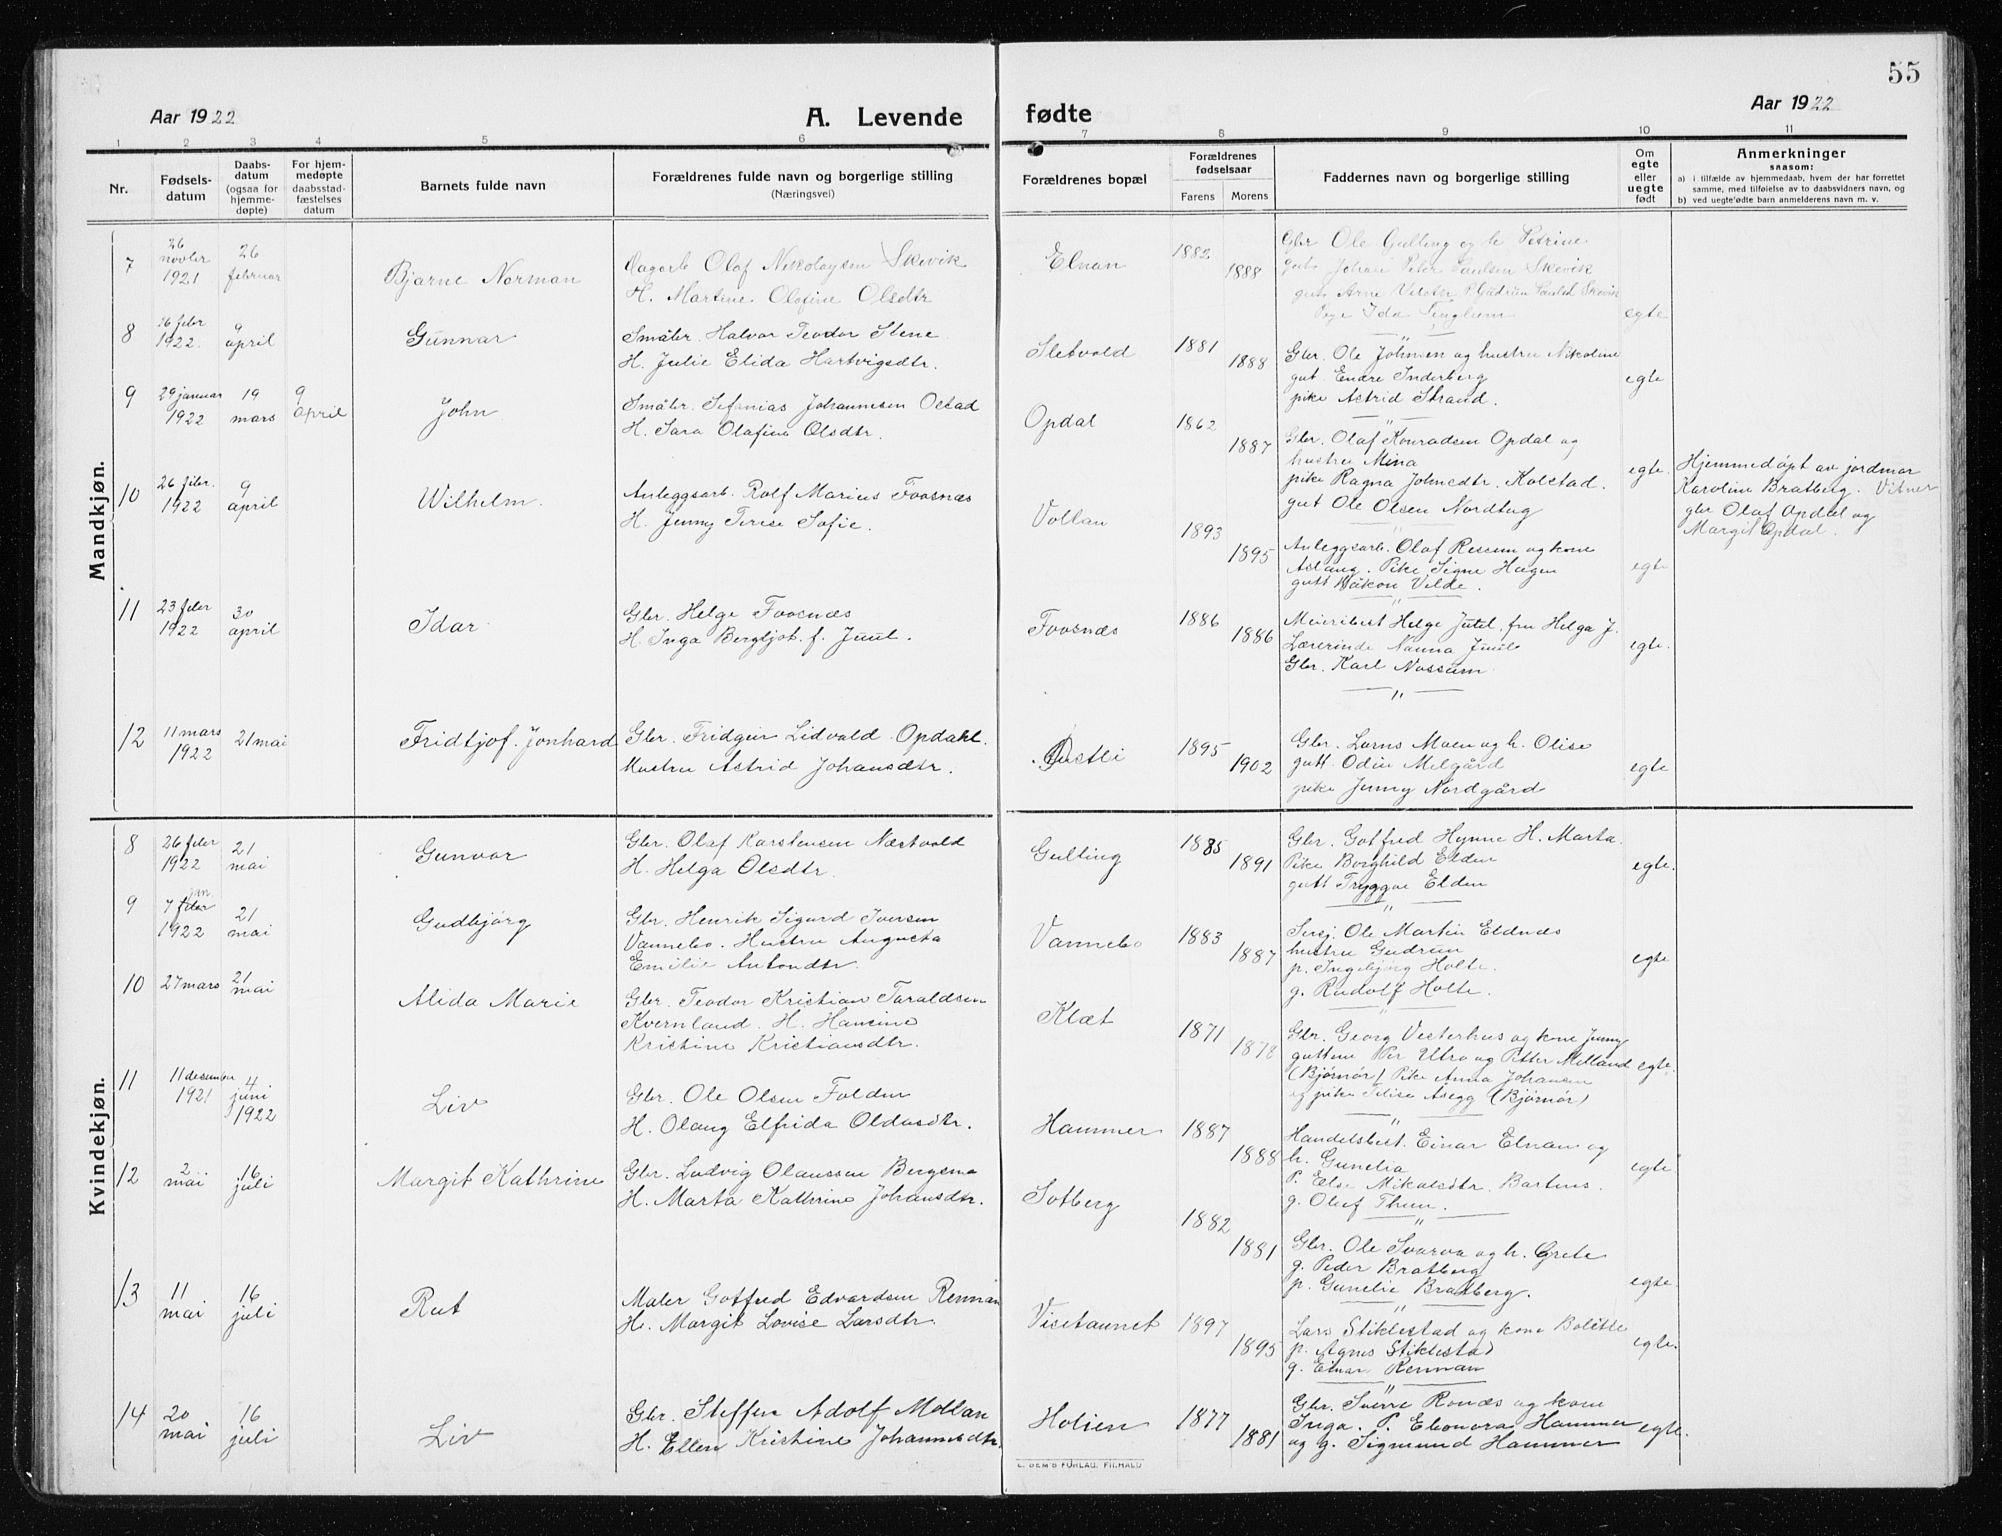 55
Aar 1922
A. Levende fødte
Aar 1922
1 2 3 4 5 6 7 8 9 10 11
Nr.
Fødsels-
datum
Daabs-
datum
(ogsaa for
hjemme-
døpte)
For hjem-
medøpte
daabsstad-
fæstelses
datum
Barnets fulde navn
Forældrenes fulde navn og borgerlige stilling
(Næringsvei)
Forældrenes bopæl
Forældrenes
fødselsaar
Farens Morens
Faddernes navn og borgerlige stilling
Om
egte
eller
uegte
født
Anmerkninger
saasom:
a) i tilfælde av hjemmedaab, hvem der har forrettet
samme, med tilføielse av to daabsvidners navn, og
b) ved uegte fødte barn anmelderens navn m. v.
Mandkjøn.
7
26
novbr
1921
26
februar
Bjarne Norman
Dagarb Olaf Nikolaysen Skevik
H. Martine Olafine Olsdtr
Elnan
1883
1888
Gbr Ole Gulling og h Petrine
gut Johan Peter Paulsen Skevik
gut Arne P. Gudrun Paulsd Skevik
Pige Ida
egte
8
16 febr
1922
9
april
Gunnar
Småbr. Halvor Teodor Stene
H. Julie Elida Hartvigsdtr.
Sletvold
1881
1888
Gbr. Ole Johnsen og hustru Nikoline
gut. Endre Inderberg
pike Astrid Strand.
egte
9
29 januar
1922
19
mars
9
april
John
Småbr. Sefanias Johannesen Ostad
H. Sara Olafine Olsdtr.
Opdal
1862
1887
Gbr. Olaf Konradsen Opdal og
hustru Mina
pike Ragna Johnsdtr. Kolstad.
gut Ole Olsen Nordtug
egte.
Hjemmedøpt av jordmor
Karoline Bratberg. Vitner
gbr Olaf Opdal og
Margit Opdal.
10
26 febr.
1922
9
april
Wilhelm.
Anleggsarb. Rolf Marius Fossnæs
H. Jenny Terese Sofie.
Vollan
1893
1895
Anleggsarb. Olaf Ressem og kone
Aslaug. Pike Signe Hagen
gutt Håkon Velde.
egte
11
23 febr
1922
30
april
Idar
Gbr. Helge Fossnæs
H. Inga Bergljot f. Juul.
Fossnæs
1886
1886
Meieribest Helge Juul. fru Helga J.
Lærerinde Nanna Juul
Gbr. Karl Nossum.
egte.
12
11 mars
1922
21 mai
Fridtjof. Jonhard
Gbr. Fridgeir Lidvald Opdahl.
Hustru Astrid Johansdtr.
Østli
1895
1902
Gbr. Lorns Moen og h. Olise
gutt. Odin Melgård
pike Jenny Nordgård
egte
Kvindekjøn.
8
26 febr
1922
21
mai
Gunvor
Gbr. Olaf Karstensen Næstvold
H. Helga Olsdtr.
Gulling
1885
1891
Gbr. Gotfred Hynne H. Marta.
Pike Borghild Elden
gutt Tryggve Elden
egte.
9
jan.
7 febr
1922
21
mai
Gudbjørg
Gbr. Henrik Sigurd Iversen
Vannebo. Hustru Augusta
Emilie Antondtr.
Vannebo
1883
1887
Sersj. Ole Martin Eldnæs
hustru Gudrun
p. Ingebjørg Holte.
g. Rudolf Holte.
egte
10
27 mars
21
mai
Alida Marie
Gbr. Teodor Kristian Taraldsen
Kvernland. H. Hansine
Kristine Kristiansdtr.
Klæt
1871
1878
Gbr. Georg Vesterhus og kone Jenny
guttene Per Utro og Petter Melland
(Bjørnør) Pike Anna Johansen
og pike Telise Asegg (Bjørnør)
egte.
11
11 desember
1921
4
juni
1922
Liv
Gbr. Ole Olsen Folden
H. Olaug Elfrida Oldasdtr.
Hammer
1887
1888
Handelsbest. Einar Elnan og
h. Gunelia
P. Else Mikalsdtr. Bartnes.
g. Oluf Thun.
egte
12
2
mai
16
juli
Margit Kathrine
Gbr. Ludvig Olaussen Bergsmo
H. Marta Kathrine Johansdtr.
Sotberg
1882
1881
Gbr. Ole Svarva og h. Grete
g. Peder Bratberg
p. Gunelie Bratberg.
egte.
13
11
mai
16
juli
Rut
Maler Gotfred Edvardsen Renman
H. Margit Lovise Larsdtr.
Visetaunet
1897
1895
Lars Stiklestad og kone Bolette
p. Agnes Stiklestad
g. Einar Renman
egte.
14
20
mai
16
juli
Liv
Gbr. Steffen Adolf Mollan
H. Ellen Kristine Johannesdtr.
Holien
1877
1881
Gbr. Sverre Ronæs og kone
Inga. P. Eleonora Hammer
og g. Sigmund Hammer
egte.